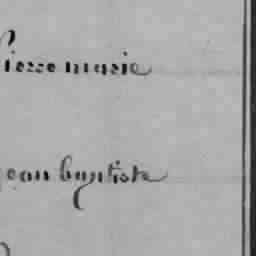 Pierre marie
jean baptiste